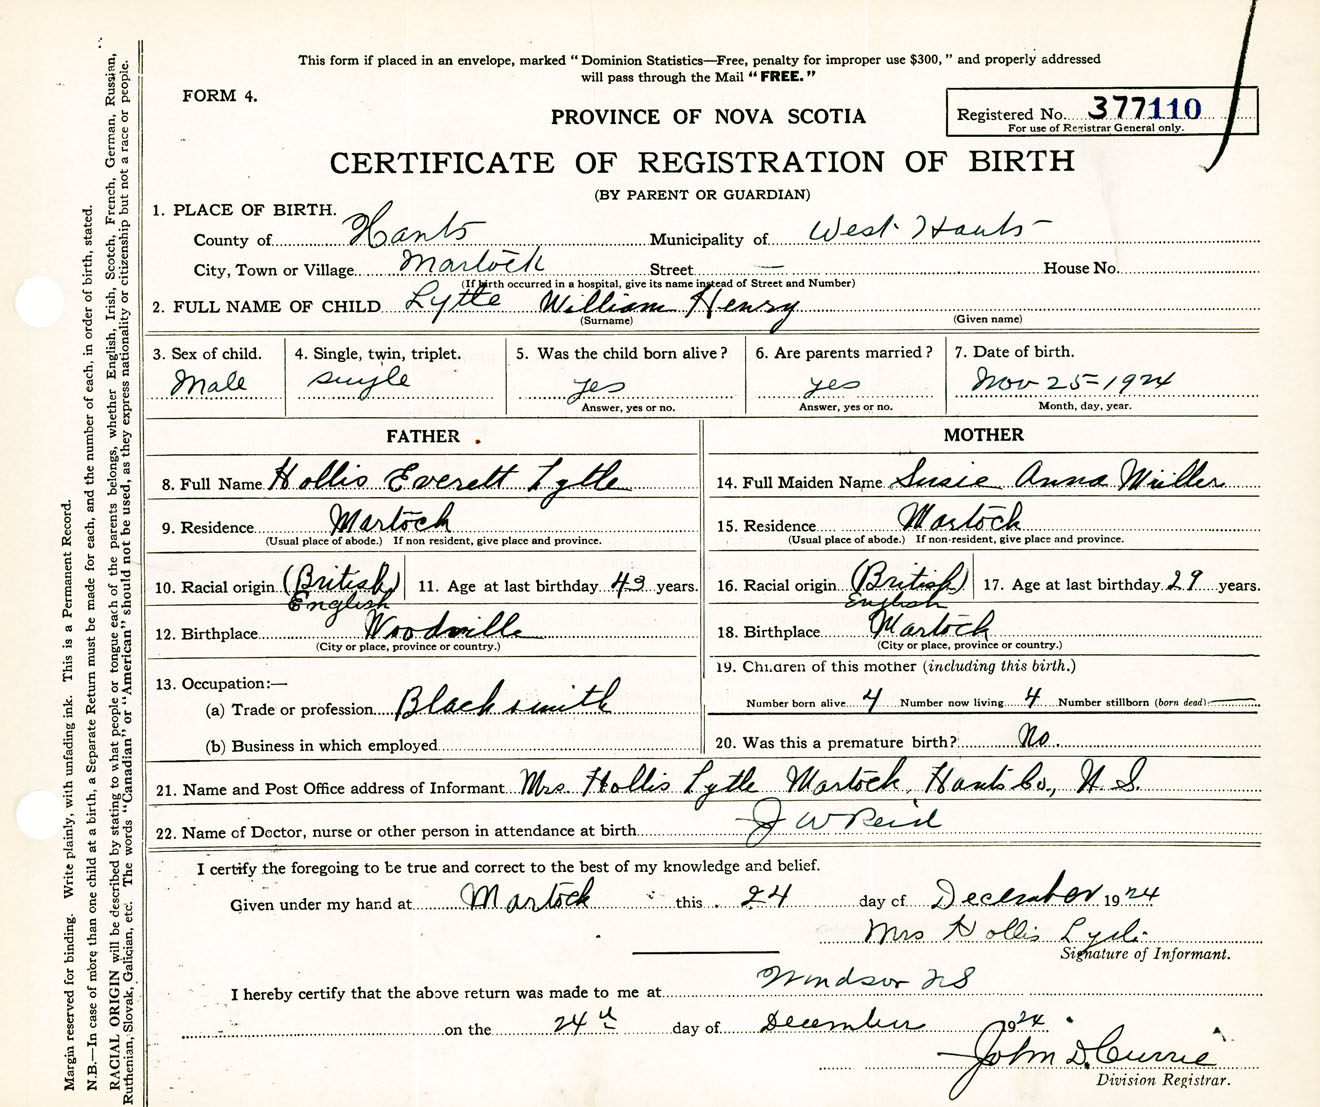 This form if placed in an envelope, marked "Dominion Statistics—Free, penalty for improper use $300," and properly addressed
will pass through the Mail "FREE."
FORM 4.
PROVINCE OF NOVA SCOTIA
Registered No. 377110
For use of Registrar General only.
CERTIFICATE OF REGISTRATION OF BIRTH
(BY PARENT OR GUARDIAN)
1. PLACE OF BIRTH.
County of Hants Municipality of West Hants
City, Town or Village Martock Street — House No.
(If birth occurred in a hospital, give its name instead of Street and Number)
2. FULL NAME OF CHILD Lytle William Henry
(Surname) (Given name)
3. Sex of child. 4. Single, twin, triplet. 5. Was the child born alive? 6. Are parents married? 7. Date of birth.
Male single yes yes Nov 25 1924
Answer, yes or no. Answer, yes or no. Month, day, year.
FATHER MOTHER
8. Full Name Hollis Everett Lytle 14. Full Maiden Name Susie Anna Miller
9. Residence Martock 15. Residence Martock
(Usual place of abode.) If non resident, give place and province. (Usual place of abode.) If non-resident, give place and province.
10. Racial origin (British) 11. Age at last birthday 43 years. 16. Racial origin (British) 17. Age at last birthday 29 years.
English English
12. Birthplace Woodville 18. Birthplace Martock
(City or place, province or country.) (City or place, province or country.)
19. Children of this mother (including this birth.)
13. Occupation:—
(a) Trade or profession Blacksmith Number born alive 4 Number now living 4 Number stillborn (born dead)
(b) Business in which employed 20. Was this a premature birth? No.
21. Name and Post Office address of Informant Mrs. Hollis Lytle Martock, Hants Co., N.S.
22. Name of Doctor, nurse or other person in attendance at birth J W Reid
I certify the foregoing to be true and correct to the best of my knowledge and belief.
Given under my hand at Martock this 24 day of December 1924
Mrs Hollis
Signature of Informant.
I hereby certify that the above return was made to me at Windsor NS
on the 24th day of December 1924
John D. Currie
Division Registrar.
Margin reserved for binding. Write plainly, with unfading ink. This is a Permanent Record.
N.B.—In case of more than one child at a birth, a Separate Return must be made for each, and the number of each, in order of birth, stated.
RACIAL ORIGIN will be described by stating to what people or tongue each of the parents belongs, whether English, Irish, Scotch, French, German, Russian,
Ruthenian, Slovak, Galician, etc. The words "Canadian" or "American" should not be used, as they express nationality or citizenship but not a race or people.